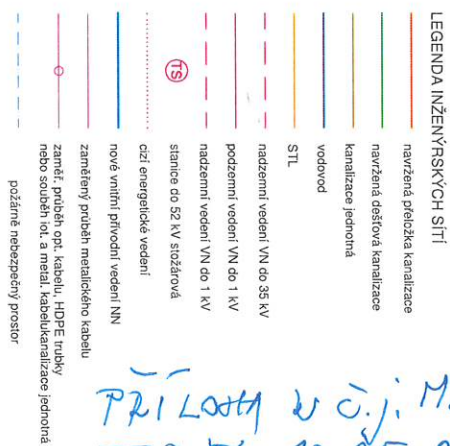 LEGENDA INŽENÝRSKÝCH SÍTÍ
navržená přeložka kanalizace
navržená dešťová kanalizace
kanalizace jednotná
vodovod
STL
nadzemní vedení VN do 35 kV
podzemní vedení VN do 1 kV
nadzemní vedení VN do 1 kV
TS
stanice do 52 kV stožárová
cizí energetické vedení
nové vnitřní přívodní vedení NN
zaměřený průběh metalického kabelu
zaměř. průběh opt. kabelu, HDPE trubky
nebo souběh iot. a metal. kabelukanalizace jednotná
požárně nebezpečný prostor
PŘÍLOHA k č.j. M